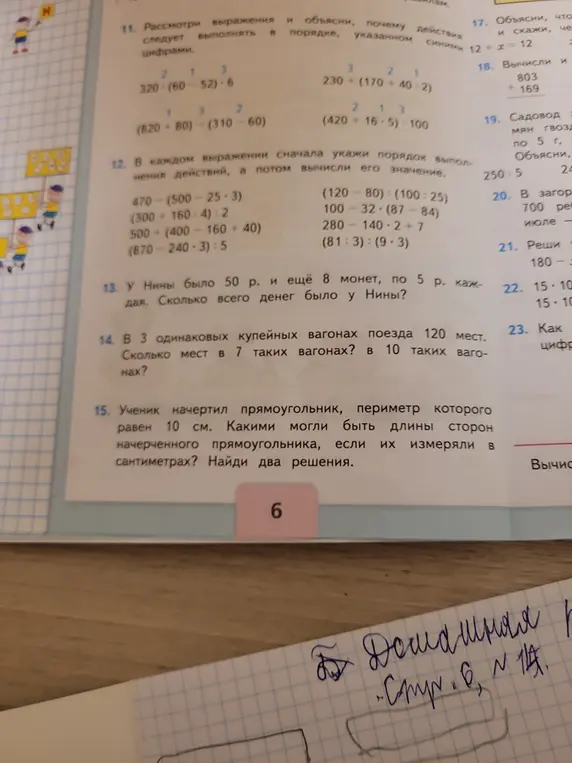 11. Рассмотри выражения и объясни, почему действия
следует выполнять в порядке, указанном синими
цифрами.
2 1 3
320 : (60 − 52) · 6
3 2 1
230 + (170 + 40 : 2)
1 3 2
(820 + 80) − (310 − 60)
2 1 3
(420 + 16 · 5) : 100
12. В каждом выражении сначала укажи порядок выпол-
нения действий, а потом вычисли его значение.
470 − (500 − 25 · 3)
(300 + 160 : 4) : 2
500 + (400 − 160 + 40)
(870 − 240 · 3) : 5
(120 − 80) : (100 : 25)
100 − 32 · (87 − 84)
280 − 140 · 2 + 7
(81 : 3) : (9 · 3)
13. У Нины было 50 р. и ещё 8 монет, по 5 р. каж-
дая. Сколько всего денег было у Нины?
14. В 3 одинаковых купейных вагонах поезда 120 мест.
Сколько мест в 7 таких вагонах? в 10 таких ваго-
нах?
15. Ученик начертил прямоугольник, периметр которого
равен 10 см. Какими могли быть длины сторон
начерченного прямоугольника, если их измеряли в
сантиметрах? Найди два решения.
6
17. Объясни, что
и скажи, че
12 + x = 12
18. Вычисли и
803
+ 169
19. Садовод
мян гвозд
по 5 г,
Объясни,
250 : 5 24
20. В загор
700 реб
июле —
21. Реши
180 −
22. 15 · 10
15 · 10
23. Как
цифр
Вычис
Домашняя
Стр. 6, № 14.